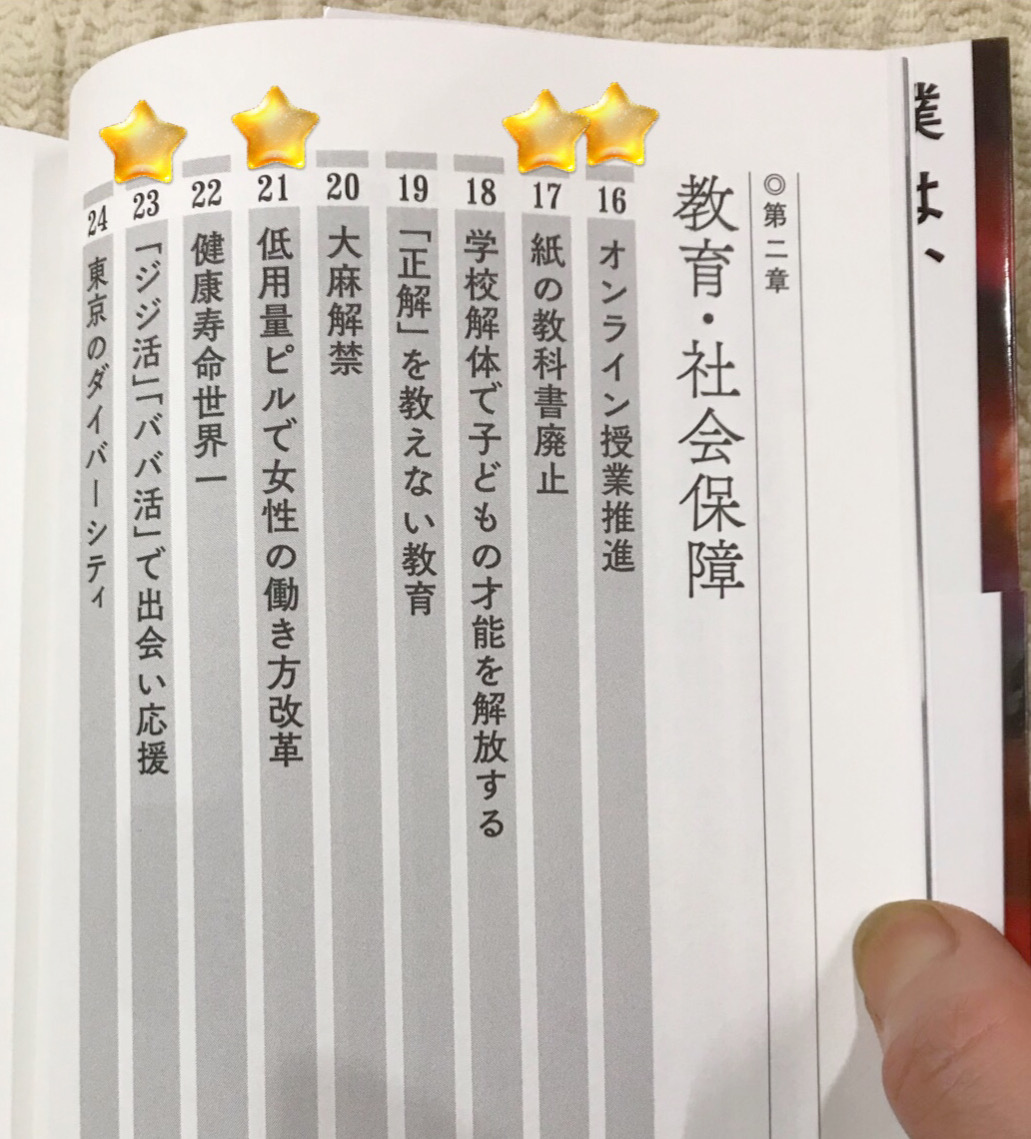 業は、
◎第二章
教育・社会保障
16 オンライン授業推進
17 紙の教科書廃止
18 学校解体で子どもの才能を解放する
19 「正解」を教えない教育
20 大麻解禁
21 低用量ピルで女性の働き方改革
22 健康寿命世界一
23 「ジジ活」「ババ活」で出会い応援
24 東京のダイバーシティ